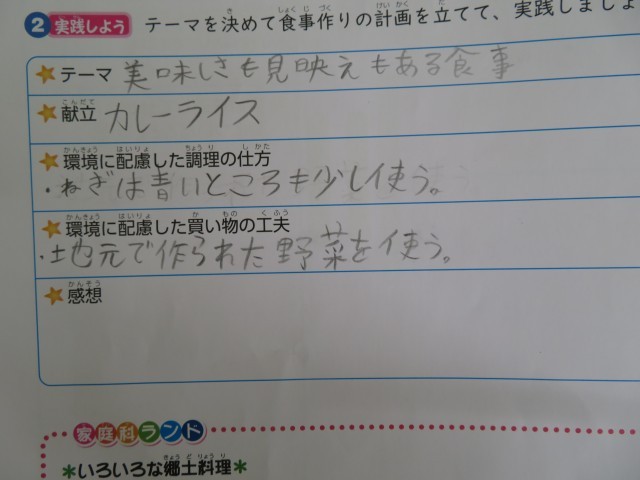 2 実践しよう テーマを決めて食事作りの計画を立てて、実践しましょ
テーマ 美味しさも見映えもある食事
献立 カレーライス
環境に配慮した調理の仕方
・ねぎは青いところも少し使う。
環境に配慮した買い物の工夫
・地元で作られた野菜を使う。
感想
家庭科ランド
*いろいろな郷土料理*